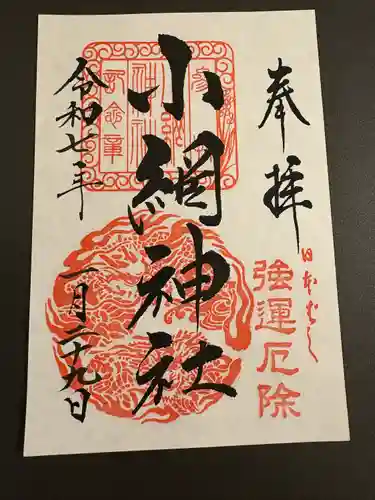 奉拝
日本ばし
強運厄除
小網神社
令和七年
一月二十九日